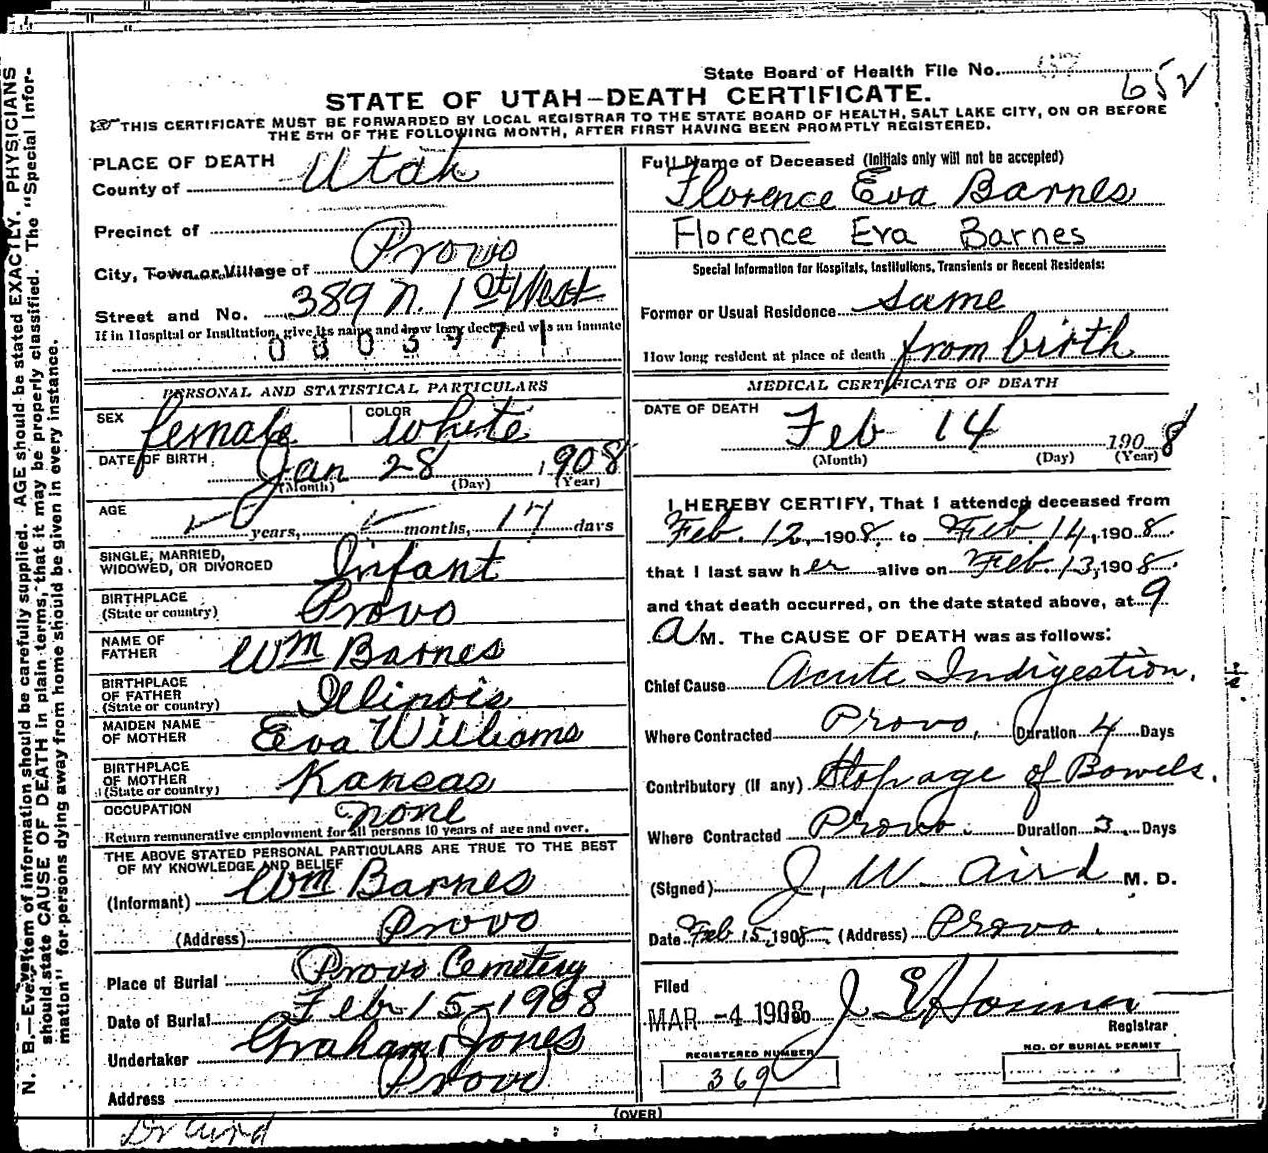 State Board of Health File No.
652
STATE OF UTAH—DEATH CERTIFICATE.
THIS CERTIFICATE MUST BE FORWARDED BY LOCAL REGISTRAR TO THE STATE BOARD OF HEALTH, SALT LAKE CITY, ON OR BEFORE
THE 5TH OF THE FOLLOWING MONTH, AFTER FIRST HAVING BEEN PROMPTLY REGISTERED.
PLACE OF DEATH
County of Utah
Precinct of
City, Town or Village of Provo
Street and No. 389 N. 1st West
If in Hospital or Institution, give its name and how long deceased was an inmate
PERSONAL AND STATISTICAL PARTICULARS
SEX female COLOR white
DATE OF BIRTH Jan 28, 1908
(Month) (Day) (Year)
AGE years, months, 17 days
SINGLE, MARRIED,
WIDOWED, OR DIVORCED Infant
BIRTHPLACE
(State or country) Provo
NAME OF
FATHER Wm Barnes
BIRTHPLACE
OF FATHER
(State or country) Illinois
MAIDEN NAME
OF MOTHER Eva Williams
BIRTHPLACE
OF MOTHER
(State or country) Kansas
OCCUPATION none
Return remunerative employment for all persons 10 years of age and over.
THE ABOVE STATED PERSONAL PARTICULARS ARE TRUE TO THE BEST
OF MY KNOWLEDGE AND BELIEF
(Informant) Wm Barnes
(Address) Provo
Place of Burial Provo Cemetery
Date of Burial Feb 15-1908
Undertaker Graham Jones
Address Provo
Full Name of Deceased (Initials only will not be accepted)
Florence Eva Barnes
Florence Eva Barnes
Special Information for Hospitals, Institutions, Transients or Recent Residents:
Former or Usual Residence same
How long resident at place of death from birth
MEDICAL CERTIFICATE OF DEATH
DATE OF DEATH Feb 14 1908
(Month) (Day) (Year)
I HEREBY CERTIFY, That I attended deceased from
Feb. 12, 1908, to Feb. 14, 1908.
that I last saw her alive on Feb. 13, 1908.
and that death occurred, on the date stated above, at 9
A M. The CAUSE OF DEATH was as follows:
Chief Cause Acute Indigestion.
Where Contracted Provo, Duration 4 Days
Contributory (if any) Stopage of Bowels.
Where Contracted Provo. Duration 3 Days
(Signed) J. W. Aird M. D.
Date Feb 15, 1908 (Address) Provo.
Filed
MAR -4 1908 J E Homer
Registrar
REGISTERED NUMBER
369
NO. OF BURIAL PERMIT
(OVER)
Dr Aird
N. B.—Every item of information should be carefully supplied. AGE should be stated EXACTLY. PHYSICIANS
should state CAUSE OF DEATH in plain terms, that it may be properly classified. The "Special Infor-
mation" for persons dying away from home should be given in every instance.